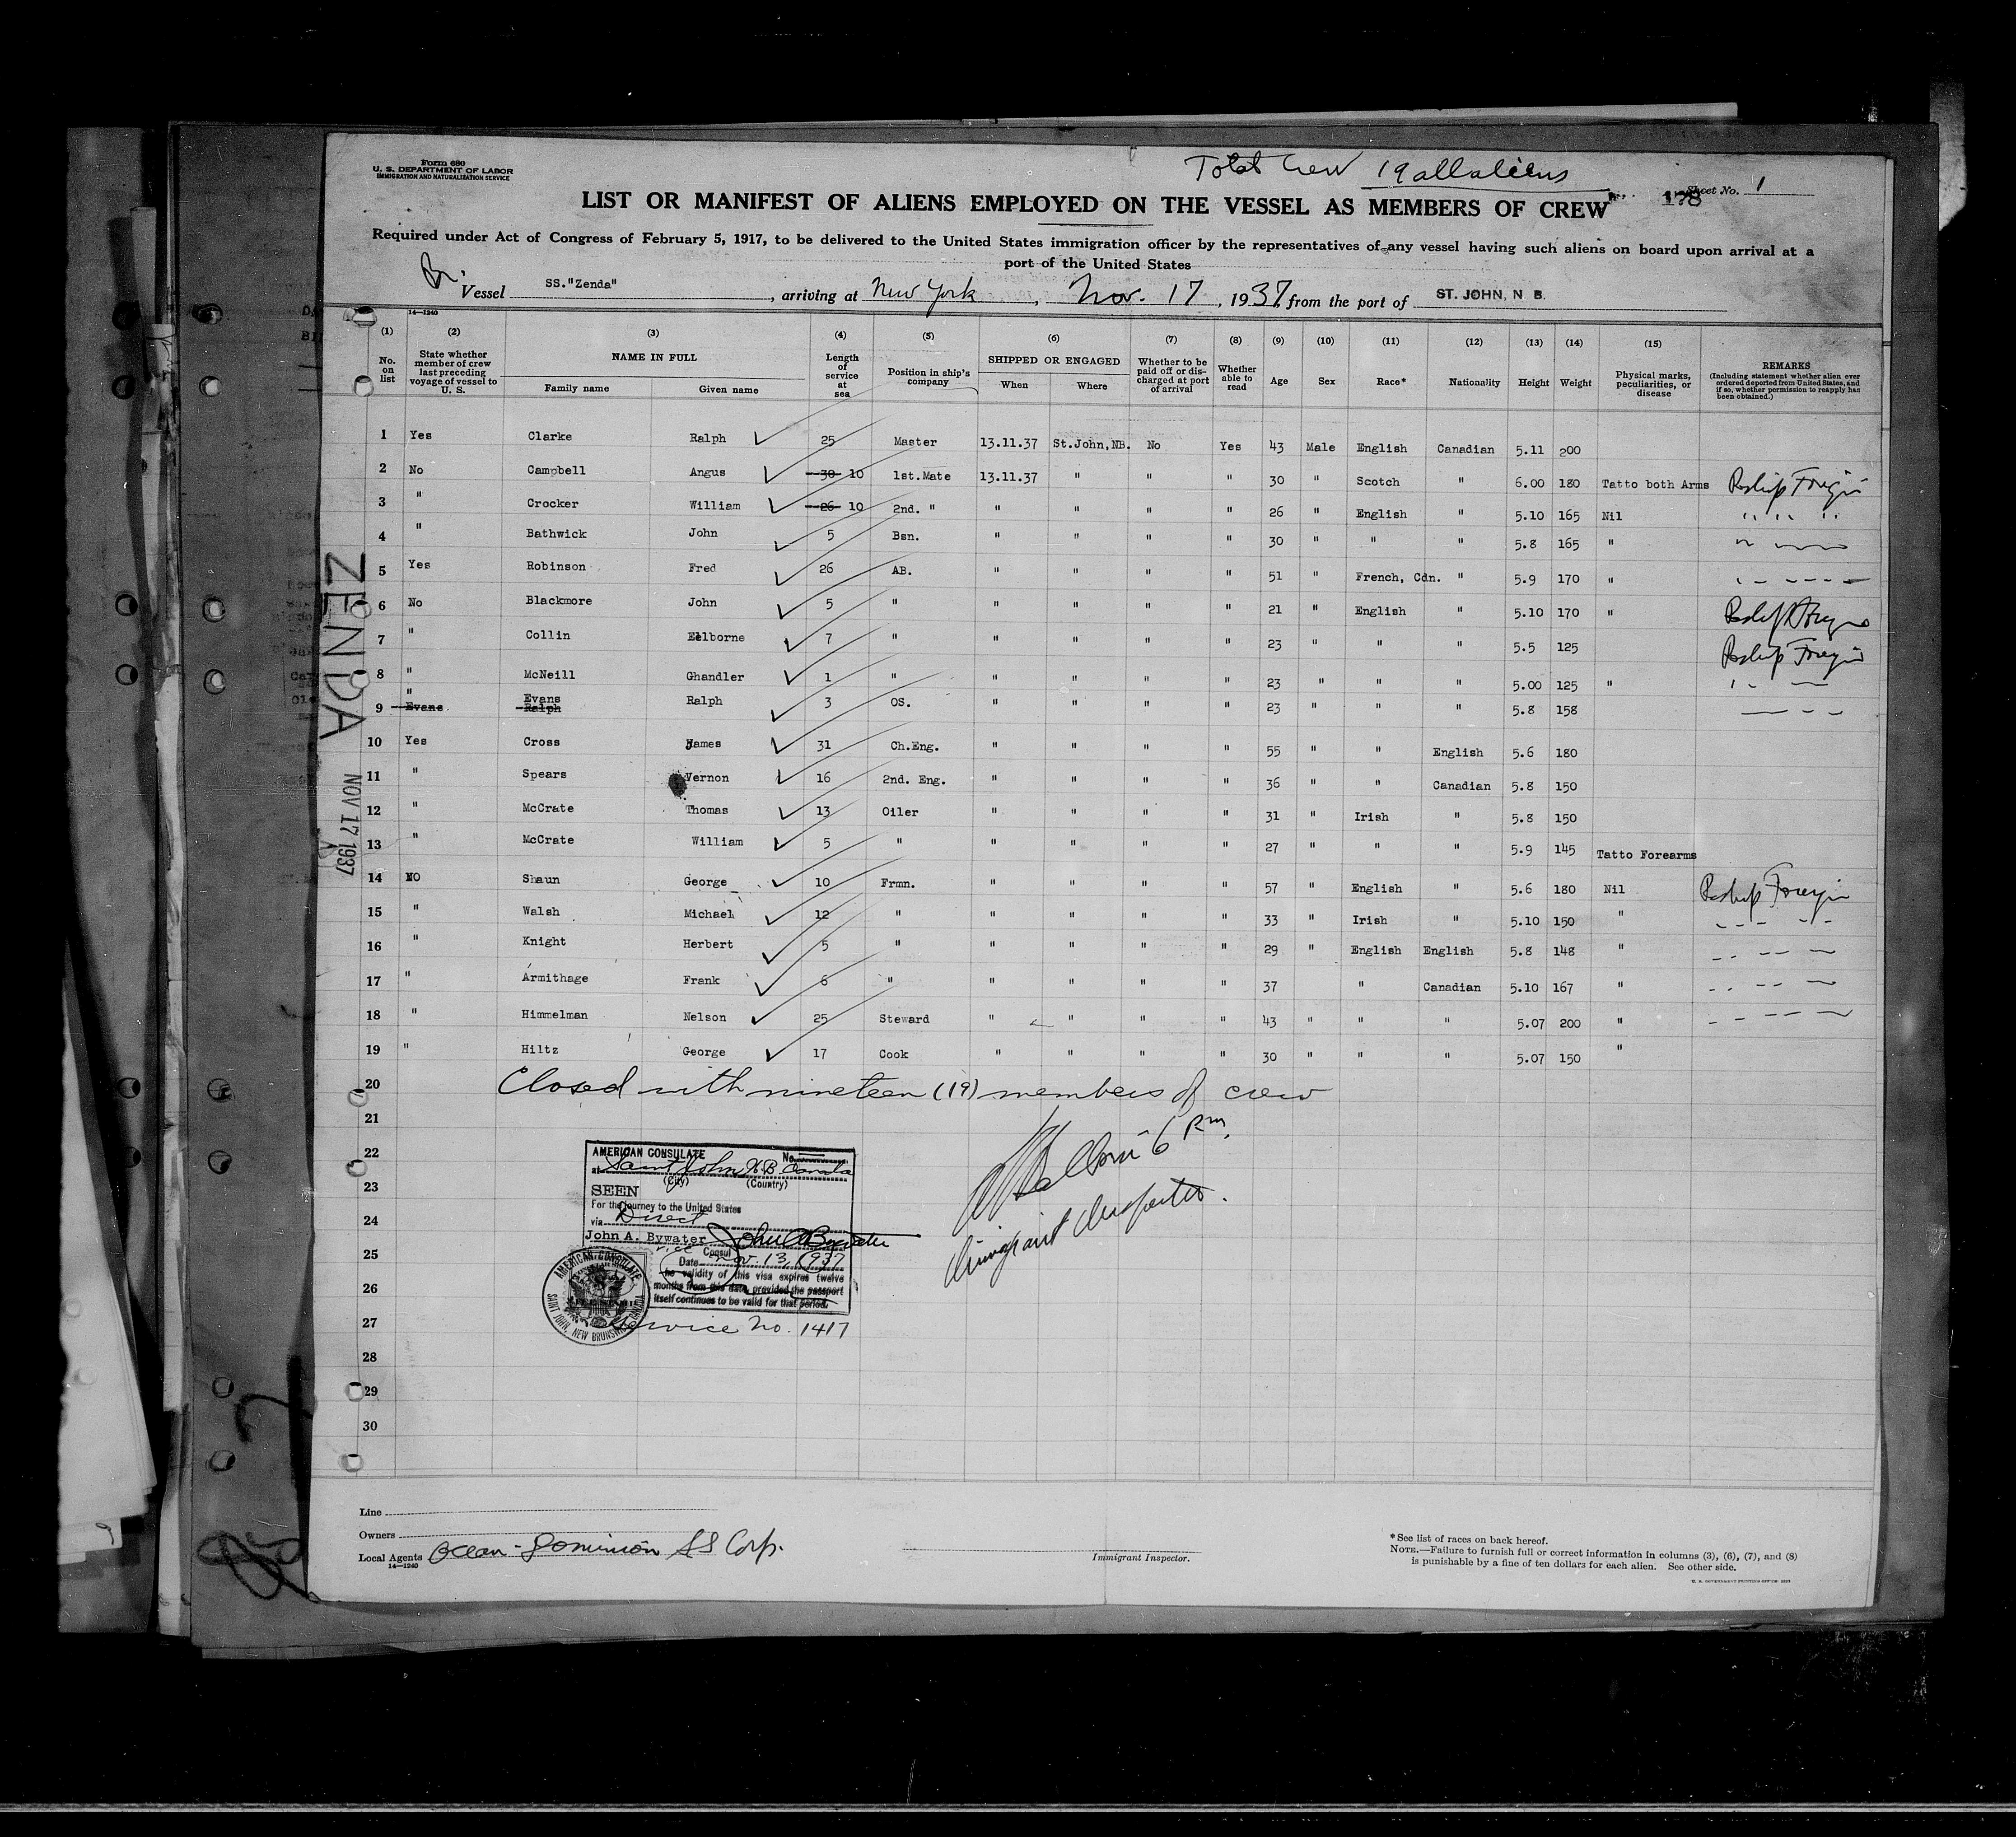 Form 680
U. S. DEPARTMENT OF LABOR
IMMIGRATION AND NATURALIZATION SERVICE
Total Crew 19 all aliens
Sheet No. 1
178
LIST OR MANIFEST OF ALIENS EMPLOYED ON THE VESSEL AS MEMBERS OF CREW
Required under Act of Congress of February 5, 1917, to be delivered to the United States immigration officer by the representatives of any vessel having such aliens on board upon arrival at a
port of the United States
Br. Vessel SS."Zenda", arriving at New York, Nov. 17, 1937, from the port of ST. JOHN, N B.
14—1240
(1) (2) (3) (4) (5) (6) (7) (8) (9) (10) (11) (12) (13) (14) (15)
No. on list
State whether member of crew last preceding voyage of vessel to U. S.
NAME IN FULL
Family name
Given name
Length of service at sea
Position in ship's company
SHIPPED OR ENGAGED
When
Where
Whether to be paid off or discharged at port of arrival
Whether able to read
Age
Sex
Race*
Nationality
Height
Weight
Physical marks, peculiarities, or disease
REMARKS
(Including statement whether alien ever ordered deported from United States, and if so, whether permission to reapply has been obtained.)
1 Yes Clarke Ralph 25 Master 13.11.37 St.John,NB. No Yes 43 Male English Canadian 5.11 200
2 No Campbell Angus 30 10 1st.Mate 13.11.37 " " " 30 " Scotch " 6.00 180 Tatto both Arms Reship Foreign
3 " Crocker William 26 10 2nd. " " " " " 26 " English " 5.10 165 Nil " " "
4 " Bathwick John 5 Bsn. " " " " 30 " " " 5.8 165 "
5 Yes Robinson Fred 26 AB. " " " " 51 " French, Cdn. " 5.9 170 "
6 No Blackmore John 5 " " " " " 21 " English " 5.10 170 " Reship Foreign
7 " Collin Eelborne 7 " " " " " 23 " " " 5.5 125 Reship Foreign
8 " McNeill Ghandler 1 " " " " " 23 " " " 5.00 125 "
9 " Evans Evans Ralph Ralph 3 OS. " " " " 23 " " " 5.8 158
10 Yes Cross James 31 Ch.Eng. " " " " 55 " " English 5.6 180
11 " Spears Vernon 16 2nd. Eng. " " " " 36 " " Canadian 5.8 150
12 " McCrate Thomas 13 Oiler " " " " 31 " Irish " 5.8 150
13 " McCrate William 5 " " " " " 27 " " " 5.9 145 Tatto Forearms
14 NO Shaun George 10 Frmn. " " " " 57 " English " 5.6 180 Nil Reship Foreign
15 " Walsh Michael 12 " " " " " 33 " Irish " 5.10 150 "
16 " Knight Herbert 5 " " " " " 29 " English English 5.8 148 "
17 " Armithage Frank 6 " " " " " 37 " Canadian 5.10 167 "
18 " Himmelman Nelson 25 Steward " " " " 43 " " " 5.07 200 "
19 " Hiltz George 17 Cook " " " " 30 " " " 5.07 150 "
20 Closed with nineteen (19) members of crew
21
22
23
24
25
26
27
28
29
30
6 Pm.
Immigrant Inspector.
AMERICAN CONSULATE No.
at Saint John N.B. Canada
(City) (Country)
SEEN
For the journey to the United States
via Direct
John A. Bywater John A Bywater
vice Consul
Date Nov. 13, 1937
The validity of this visa expires twelve
months from this date, provided the passport
itself continues to be valid for that period.
Service No. 1417
AMERICAN CONSULATE
SAINT JOHN, NEW BRUNSWICK, CANADA
ZENDA
NOV 17 1937
Line
Owners
Local Agents Ocean-Dominion SS Corp.
14—1240
Immigrant Inspector.
*See list of races on back hereof.
NOTE.—Failure to furnish full or correct information in columns (3), (6), (7), and (8)
is punishable by a fine of ten dollars for each alien. See other side.